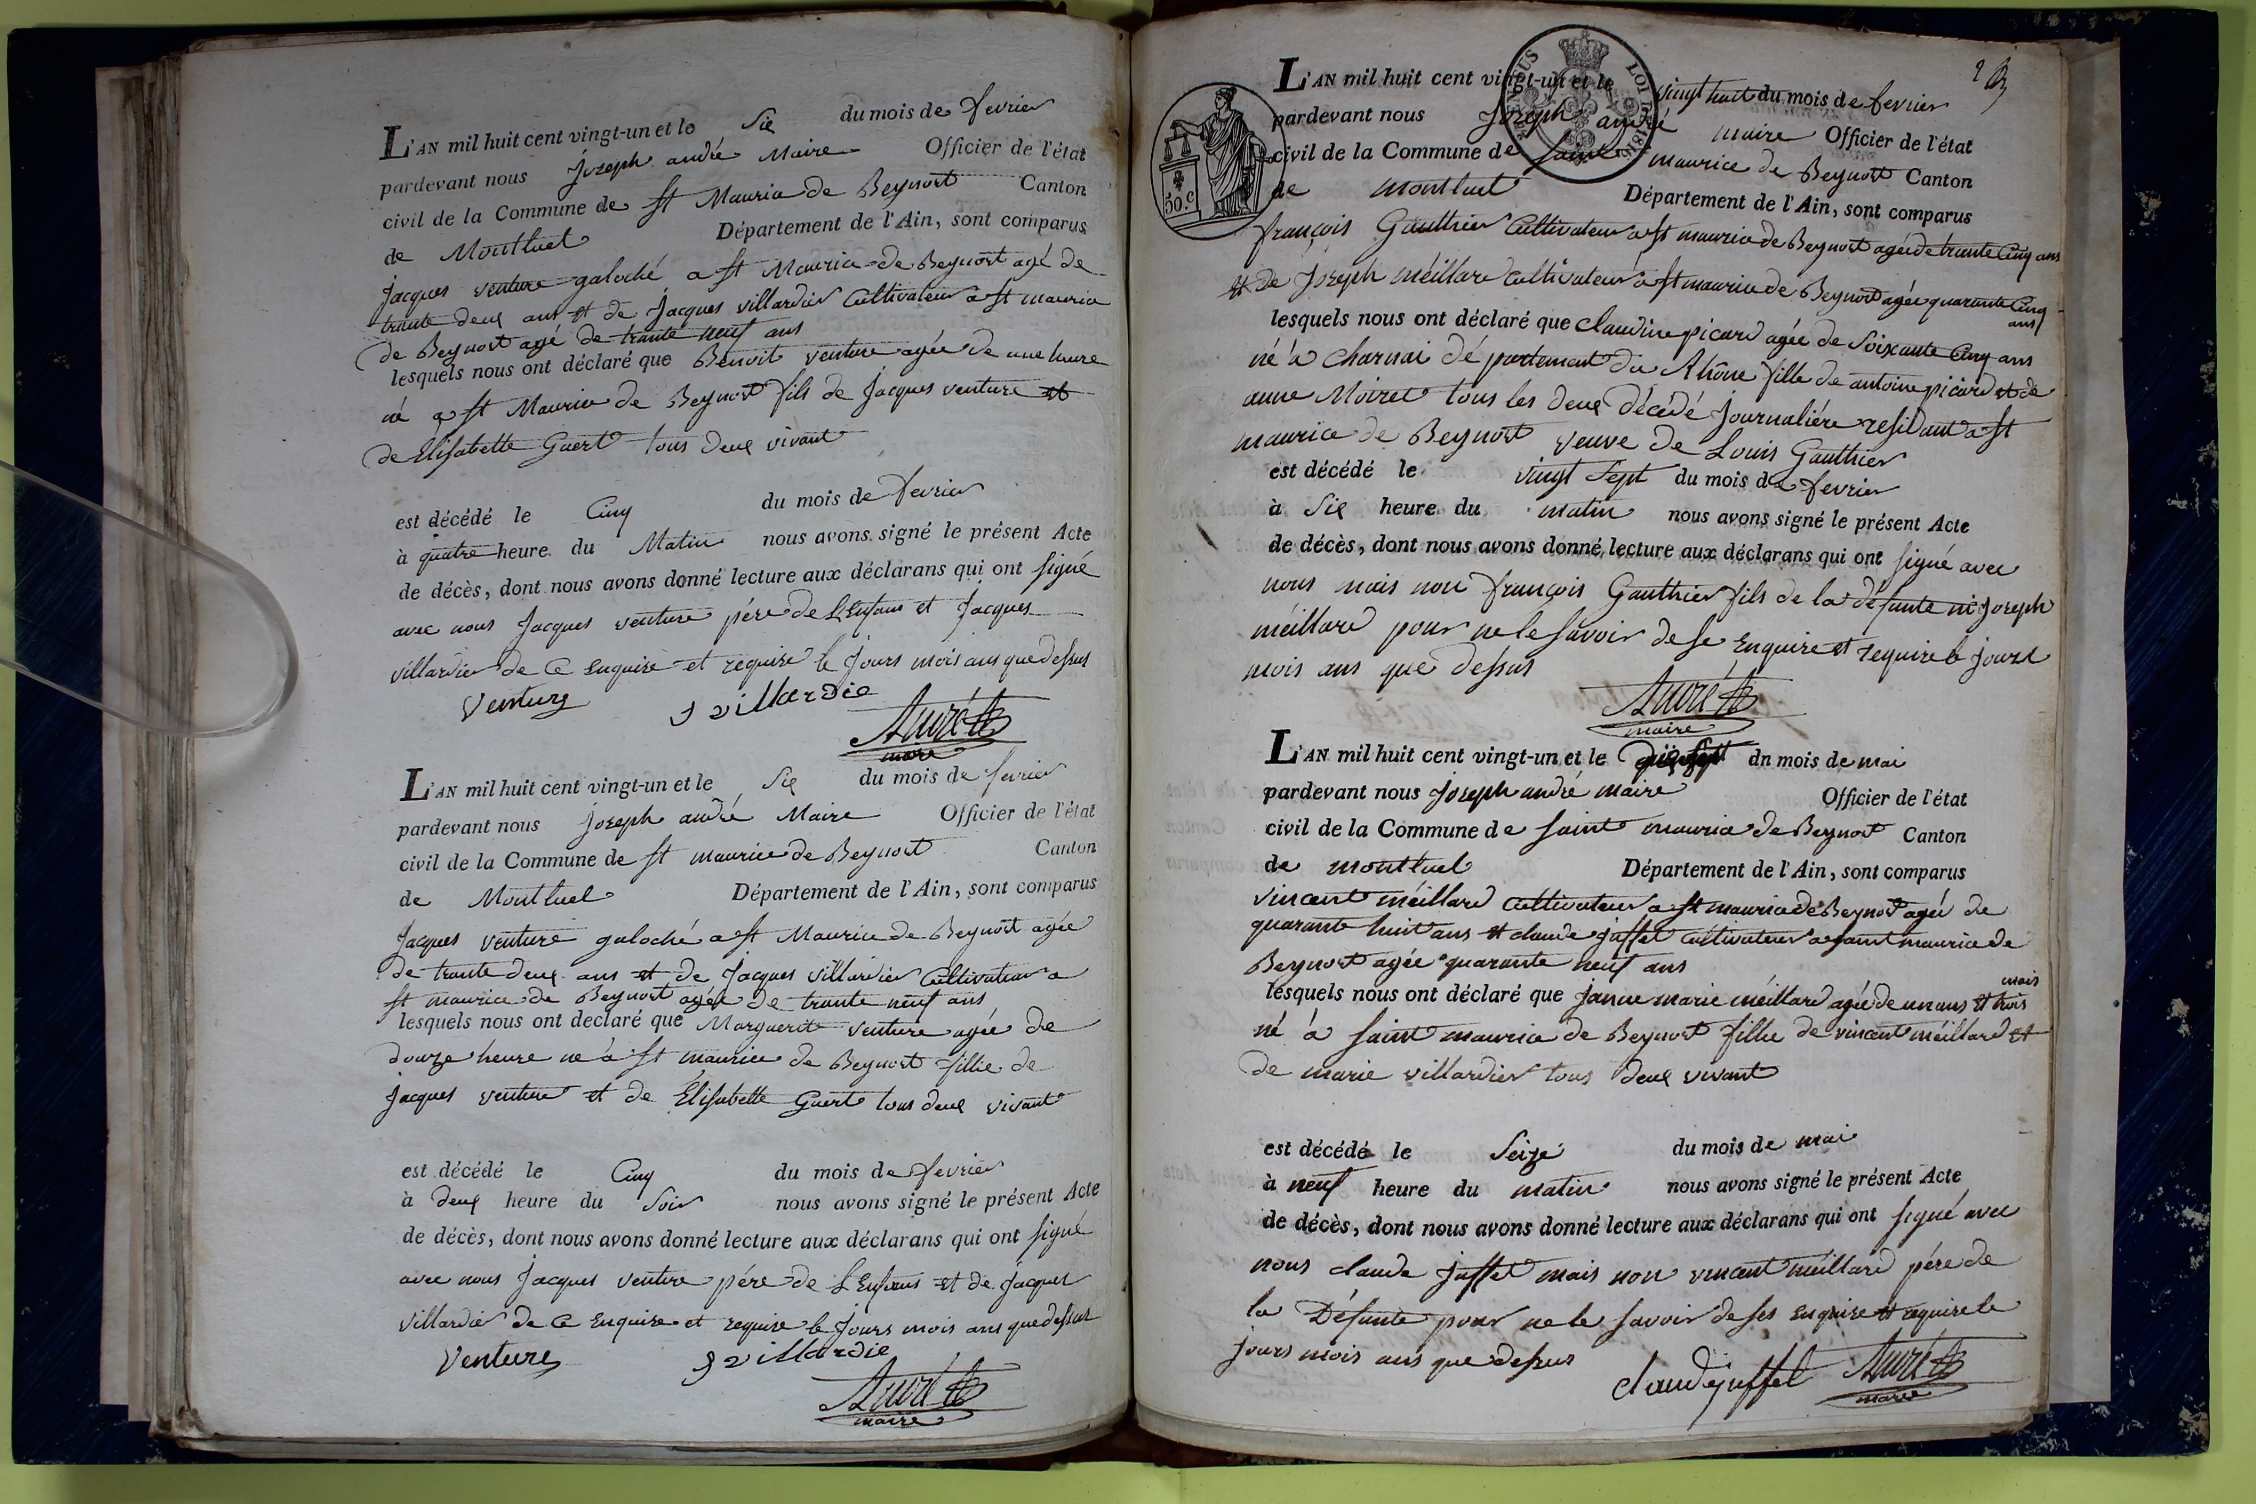 L'AN mil huit cent vingt-un et le Six du mois de fevrier
pardevant nous Jozeph andré Maire Officier de l'état
civil de la Commune de st Maurice de Beynost Canton
de Montluel Département de l'Ain, sont comparus
Jacques venture galoché a st Maurice de Beynost agé de
trante deux ans et de Jacques villardier Cultivateur a st maurice
de Beynost agé de trante neuf ans
lesquels nous ont déclaré que Benoit venture agée de une heure
né a st Maurice de Beynost fils de Jacques venture et
de Elisabette Guert tous deux vivant
est décédé le Cinq du mois de fevrier
à quatre heure du Matin nous avons signé le présent Acte
de décès, dont nous avons donné lecture aux déclarans qui ont signé
avec nous Jacques venture pére de L'Enfans et Jacques
villardier de Ce Enquire et require le Jours mois ans que dessus
Venture J villardie
André
maire
L'AN mil huit cent vingt-un et le Six du mois de fevrier
pardevant nous Jozeph andré Maire Officier de l'état
civil de la Commune de st maurice de Beynost Canton
de Montluel Département de l'Ain, sont comparus
Jacques venture galoché a st Maurice de Beynost agée
de trante deux ans et de Jacques villardier Cultivateur a
st maurice de Beynost agée de trante neuf ans
lesquels nous ont declaré que Marguerit venture agée de
douze heure né à st maurice de Beynost fillie de
Jacques venture et de Élisabette Guert tous deux vivant
est décédé le Cinq du mois de fevrier
à deux heure du Soir nous avons signé le présent Acte
de décès, dont nous avons donné lecture aux déclarans qui ont signé
avec nous Jacques venture pére de L'Enfans et de Jacques
villardier de Ce Enquire et require le Jours mois ans que dessus
Venture J villardie
André
maire
2
L'AN mil huit cent vingt-un et le vingt huit du mois de fevrier
pardevant nous Jozeph andré maire Officier de l'état
civil de la Commune de saint maurice de Beynost Canton
de montluel Département de l'Ain, sont comparus
50.c
LOI DE 1816
françois Gauthier Cultivateur a st maurice de Beynost agée de trante Cinq ans
et de Jozeph méillard Cultivateur a st maurice de Beynost agée quarante Cinq
ans
lesquels nous ont déclaré que claudine picard agée de soixante Cinq ans
né à charnai départemant du Rhône fille de antoine picard et de
anne Moiret tous les deux décédé Journaliére residant a st
maurice de Beynost veuve de Louis Gauthier
est décédé le vingt sept du mois de fevrier
à Six heure du matin nous avons signé le présent Acte
de décès, dont nous avons donné lecture aux déclarans qui ont signé avec
nous mais non françois Gauthier fils de la défunte ni Jozeph
méillard pour ne le savoir de se Enquire et require le Jours
mois ans que dessus
André
maire
L'AN mil huit cent vingt-un et le dixsept du mois de mai
pardevant nous Jozeph andré maire Officier de l'état
civil de la Commune de saint maurice de Beynost Canton
de montluel Département de l'Ain, sont comparus
vincent méillard Cultivateur a st maurice de Beynost agée de
quarante huit ans et claude juffet Cultivateur a saint maurice de
Beynost agée quarante neuf ans
mois
lesquels nous ont déclaré que janne marie méillard agée de un ans et trois
né à saint maurice de Beynost fillie de vincent méillard et
de marie villardier tous deux vivant
est décédé le Seize du mois de mai
à neuf heure du matin nous avons signé le présent Acte
de décès, dont nous avons donné lecture aux déclarans qui ont signé avec
nous claude juffet mais non vincent méillard pére de
la Défunte pour ne le savoir de ses Enquire et require le
jours mois ans que dessus
claude juffet André
maire